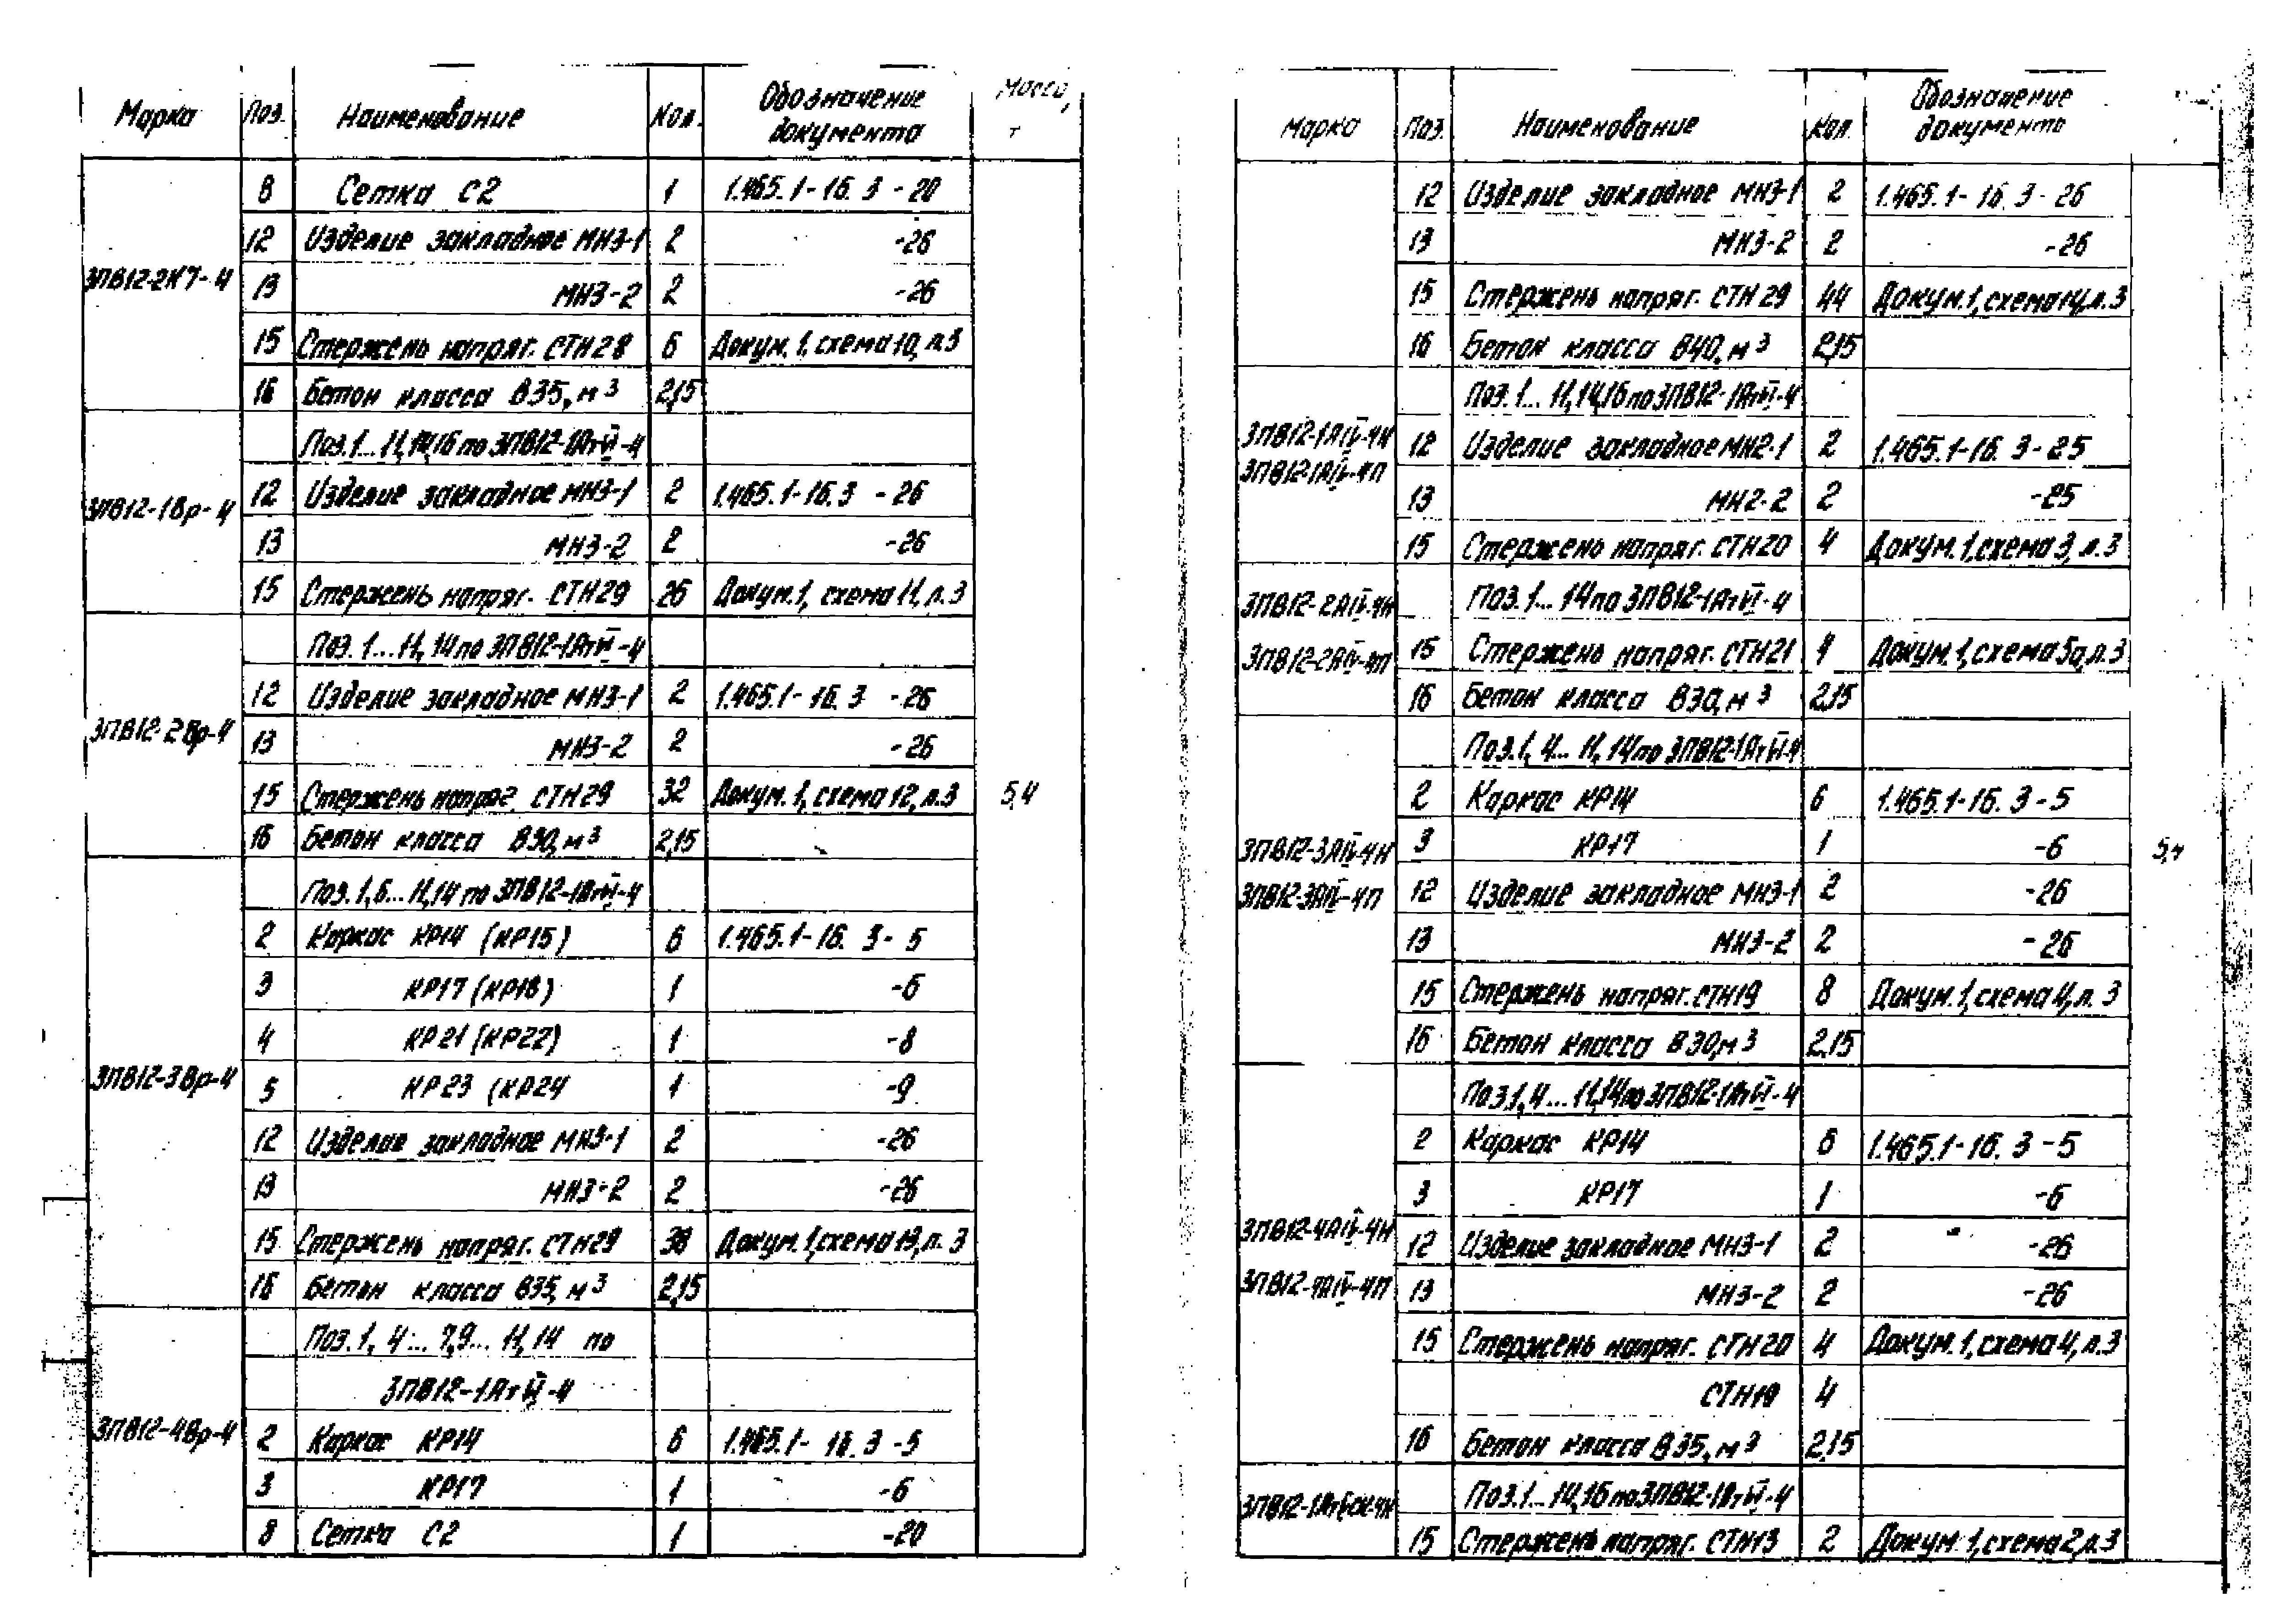 Марка Поз. Наименование Кол. Обозначение документа Масса, т
8 Сетка С2 1 1.465.1-16.3 -20
12 Изделие закладное МН3-1 2 -26
3ПВ12-2К7-4 13 МН3-2 2 -26
15 Стержень напряг. СТН28 6 Докум.1, схема 10, л.3
16 Бетон класса В35, м³ 2,15
Поз.1...11,14,16 по 3ПВ12-1АтVI-4
3ПВ12-1Вр-4 12 Изделие закладное МН3-1 2 1.465.1-16.3 -26
13 МН3-2 2 -26
15 Стержень напряг. СТН29 26 Докум.1, схема 11, л.3
Поз. 1...11, 14 по 3ПВ12-1АтVI-4
12 Изделие закладное МН3-1 2 1.465.1-16.3 -26
3ПВ12-2Вр-4 13 МН3-2 2 -26
15 Стержень напряг СТН29 32 Докум.1, схема 12, л.3 5,4
16 Бетон класса В30, м³ 2,15
Поз.1,6...11,14 по 3ПВ12-1АтVI-4
2 Каркас КР14 (КР15) 6 1.465.1-16. 3- 5
3 КР17 (КР18) 1 -6
4 КР21 (КР22) 1 -8
3ПВ12-3Вр-4 5 КР23 (КР24 1 -9
12 Изделие закладное МН3-1 2 -26
13 МН3-2 2 -26
15 Стержень напряг. СТН29 38 Докум.1, схема 13, л.3
16 Бетон класса В35, м³ 2,15
Поз.1, 4...7,9...11,14 по
3ПВ12-1АтVI-4
3ПВ12-4Вр-4 2 Каркас КР14 6 1.465.1-16.3 -5
3 КР17 1 -6
8 Сетка С2 1 -20
Марка Поз. Наименование Кол. Обозначение документа
12 Изделие закладное МН3-1 2 1.465.1-16.3-26
13 МН3-2 2 -26
15 Стержень напряг. СТН29 44 Докум.1, схема 14, л.3
16 Бетон класса В40, м³ 2,15
Поз.1...11,14,16 по 3ПВ12-1АтVI-4
3ПВ12-1АIV-4Н 12 Изделие закладное МН2-1 2 1.465.1-16.3-25
3ПВ12-1АIV-4П
13 МН2-2 2 -25
15 Стержень напряг. СТН20 4 Докум.1, схема 3, л.3
3ПВ12-2АIV-4Н Поз.1...14 по 3ПВ12-1АтVI-4
3ПВ12-2АIV-4П 15 Стержень напряг. СТН21 4 Докум.1, схема 5а, л.3
16 Бетон класса В30, м³ 2,15
Поз.1, 4...11, 14 по 3ПВ12-1АтVI-4
2 Каркас КР14 6 1.465.1-16.3-5
3ПВ12-3АIV-4Н 3 КР17 1 -6 5,4
3ПВ12-3АIV-4П 12 Изделие закладное МН3-1 2 -26
13 МН3-2 2 -26
15 Стержень напряг. СТН19 8 Докум.1, схема 4, л.3
16 Бетон класса В30, м³ 2,15
Поз.1, 4...11,14 по 3ПВ12-1АтVI-4
2 Каркас КР14 6 1.465.1-16.3-5
3 КР17 1 -6
3ПВ12-4АIV-4Н 12 Изделие закладное МН3-1 2 -26
3ПВ12-4АIV-4П 13 МН3-2 2 -26
15 Стержень напряг. СТН20 4 Докум.1, схема 4, л.3
СТН19 4
16 Бетон класса В35, м³ 2,15
Поз.1...14,16 по 3ПВ12-1АтVI-4
15 Стержень напряг. СТН13 2 Докум.1, схема 2, л.3